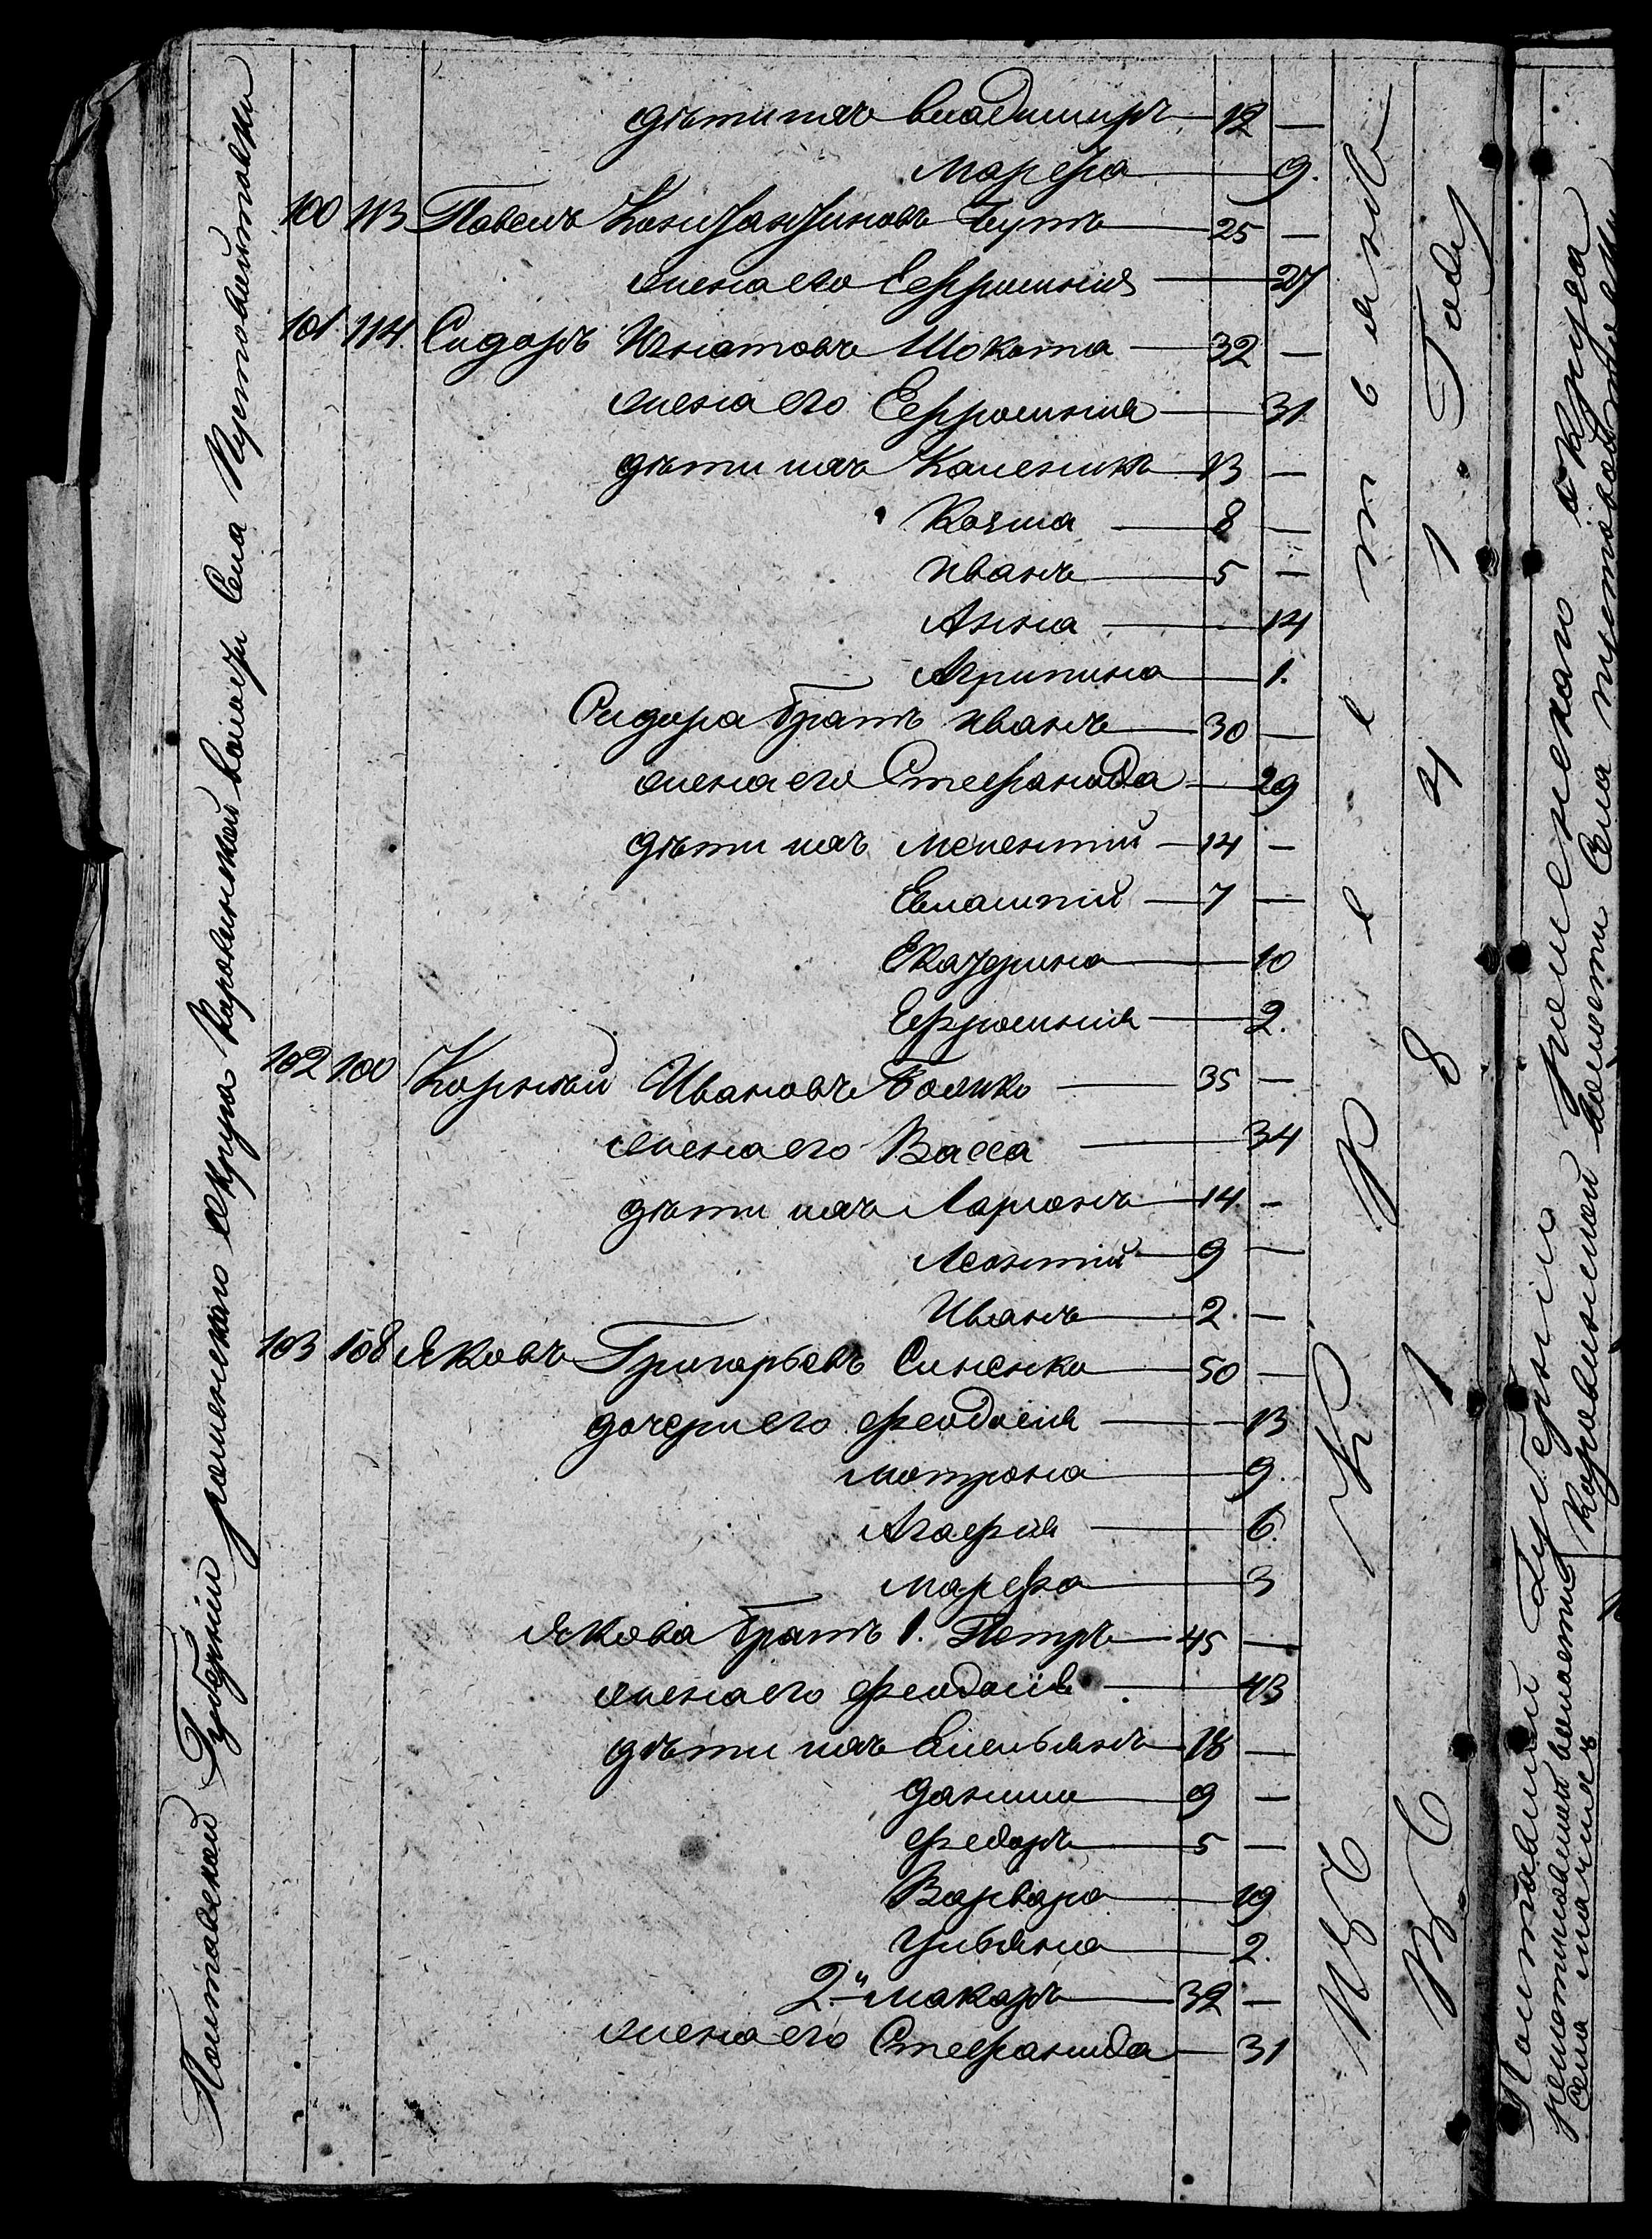 Полтавской Губерніи роменскаго округа Коровинской волости Села Пустовойтовки
дѣти ихъ владимиръ — 12 —
марѳа — 9.
100 113 Павелъ Константиновъ Бутъ — 25 —
жена его Евфросинія — 27
101 114 Сидоръ Игнатовъ Шокота — 32 —
жена его Евфросинія — 31
дѣти ихъ Каленикъ — 13 —
Козма — 8 —
иванъ — 5 —
Анна — 14
Агрипина — 1.
Сидора братъ иванъ — 30 —
жена его Стефанида — 29
дѣти ихъ Мелентій — 14 —
Евлампій — 7 —
Екатерина — 10
Евфросинія — 2.
102 100 Корнѣй Ивановъ — 35 —
жена его Васса — 34
дѣти ихъ Ларіонъ — 14 —
Леонтій — 9 —
Иванъ — 2. —
103 108 Яковъ Григорьевъ Синенко — 50 —
дочери его феодосія — 13
мотрона — 9.
Агафія — 6.
марфа — 3
Якова братъ 1. Петръ — 45 —
жена его феодосія — 43
дѣти ихъ Емельянъ — 18 —
данило — 9 —
федоръ — 5 —
Варвара — 19
Ульяна — 2.
2й макаръ — 32 —
жена его Стефанида — 31
Изъ Крестьянъ
1 8 4 1 Году
Полтавской Губерніи Роменскаго округа
Коровинской волости Села пустовойтовки